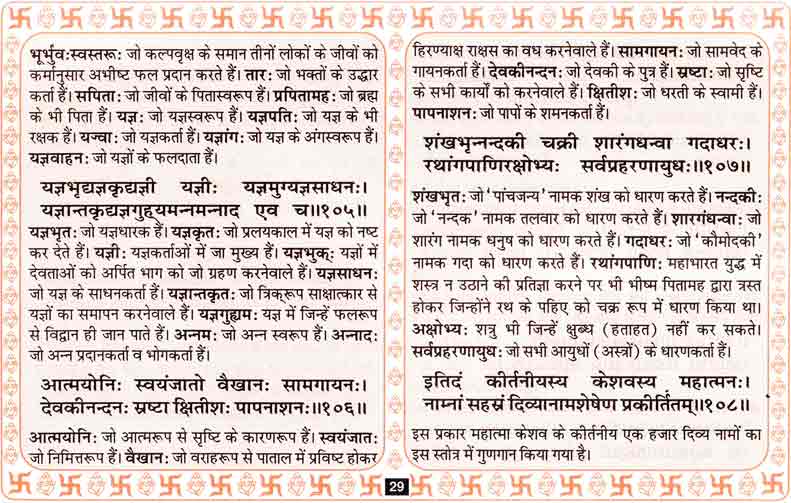 भूर्भुवःस्वस्तरू: जो कल्पवृक्ष के समान तीनों लोकों के जीवों को
कर्मानुसार अभीष्ट फल प्रदान करते हैं। तार: जो भक्तों के उद्धार
कर्ता हैं। सपिता: जो जीवों के पितास्वरूप हैं। प्रपितामह: जो ब्रह्म
के भी पिता हैं। यज्ञ: जो यज्ञस्वरूप हैं। यज्ञपति: जो यज्ञ के भी
रक्षक हैं। यज्वा: जो यज्ञकर्ता हैं। यज्ञांग: जो यज्ञ के अंगस्वरूप हैं।
यज्ञवाहन: जो यज्ञों के फलदाता हैं।
यज्ञभृद्यज्ञकृद्यज्ञी यज्ञीः यज्ञमुग्यज्ञसाधनः।
यज्ञान्तकृद्यज्ञगुह्यमन्नमन्नाद एव च॥१०५॥
यज्ञभृत: जो यज्ञधारक हैं। यज्ञकृत: जो प्रलयकाल में यज्ञ को नष्ट
कर देते हैं। यज्ञी: जो यज्ञकर्ताओं में जा मुख्य हैं। यज्ञभुक्: यज्ञों में
देवताओं को अर्पित भाग को जो ग्रहण करनेवाले हैं। यज्ञसाधन:
जो यज्ञ के साधनकर्ता हैं। यज्ञान्तकृत: जो त्रिक्रूप साक्षात्कार से
यज्ञों का समापन करनेवाले हैं। यज्ञगुह्यम: यज्ञ में जिन्हें फलरूप
से विद्वान ही जान पाते हैं। अन्नम: जो अन्न स्वरूप हैं। अन्नाद:
जो अन्न प्रदानकर्ता व भोगकर्ता हैं।
आत्मयोनिः स्वयंजातो वैखानः सामगायनः।
देवकीनन्दनः स्रष्टा क्षितीशः पापनाशनः॥१०६॥
आत्मयोनि: जो आत्मरूप से सृष्टि के कारणरूप हैं। स्वयंजात:
जो निमित्तरूप हैं। वैखान: जो वराहरूप से पाताल में प्रविष्ट होकर
हिरण्याक्ष राक्षस का वध करनेवाले हैं। सामगायन: जो सामवेद के
गायनकर्ता हैं। देवकीनन्दन: जो देवकी के पुत्र हैं। स्रष्टा: जो सृष्टि
के सभी कार्यों को करनेवाले हैं। क्षितीश: जो धरती के स्वामी हैं।
पापनाशन: जो पापों के शमनकर्ता हैं।
शंखभृन्नन्दकी चक्री शारंगधन्वा गदाधरः।
रथांगपाणिरक्षोभ्यः सर्वप्रहरणायुधः॥१०७॥
शंखभृत: जो 'पांचजन्य' नामक शंख को धारण करते हैं। नन्दकी:
जो 'नन्दक' नामक तलवार को धारण करते हैं। शारगंधन्वा: जो
शारंग नामक धनुष को धारण करते हैं। गदाधर: जो 'कौमोदकी'
नामक गदा को धारण करते हैं। रथांगपाणि: महाभारत युद्ध में
शस्त्र न उठाने की प्रतिज्ञा करने पर भी भीष्म पितामह द्वारा त्रस्त
होकर जिन्होंने रथ के पहिए को चक्र रूप में धारण किया था।
अक्षोभ्य: शत्रु भी जिन्हें क्षुब्ध (हताहत) नहीं कर सकते।
सर्वप्रहरणायुध: जो सभी आयुधों (अस्त्रों) के धारणकर्ता हैं।
इतिदं कीर्तनीयस्य केशवस्य महात्मनः।
नाम्नां सहस्रं दिव्यानामशेषेण प्रकीर्तितम्॥१०८॥
इस प्रकार महात्मा केशव के कीर्तनीय एक हजार दिव्य नामों का
इस स्तोत्र में गुणगान किया गया है।
29